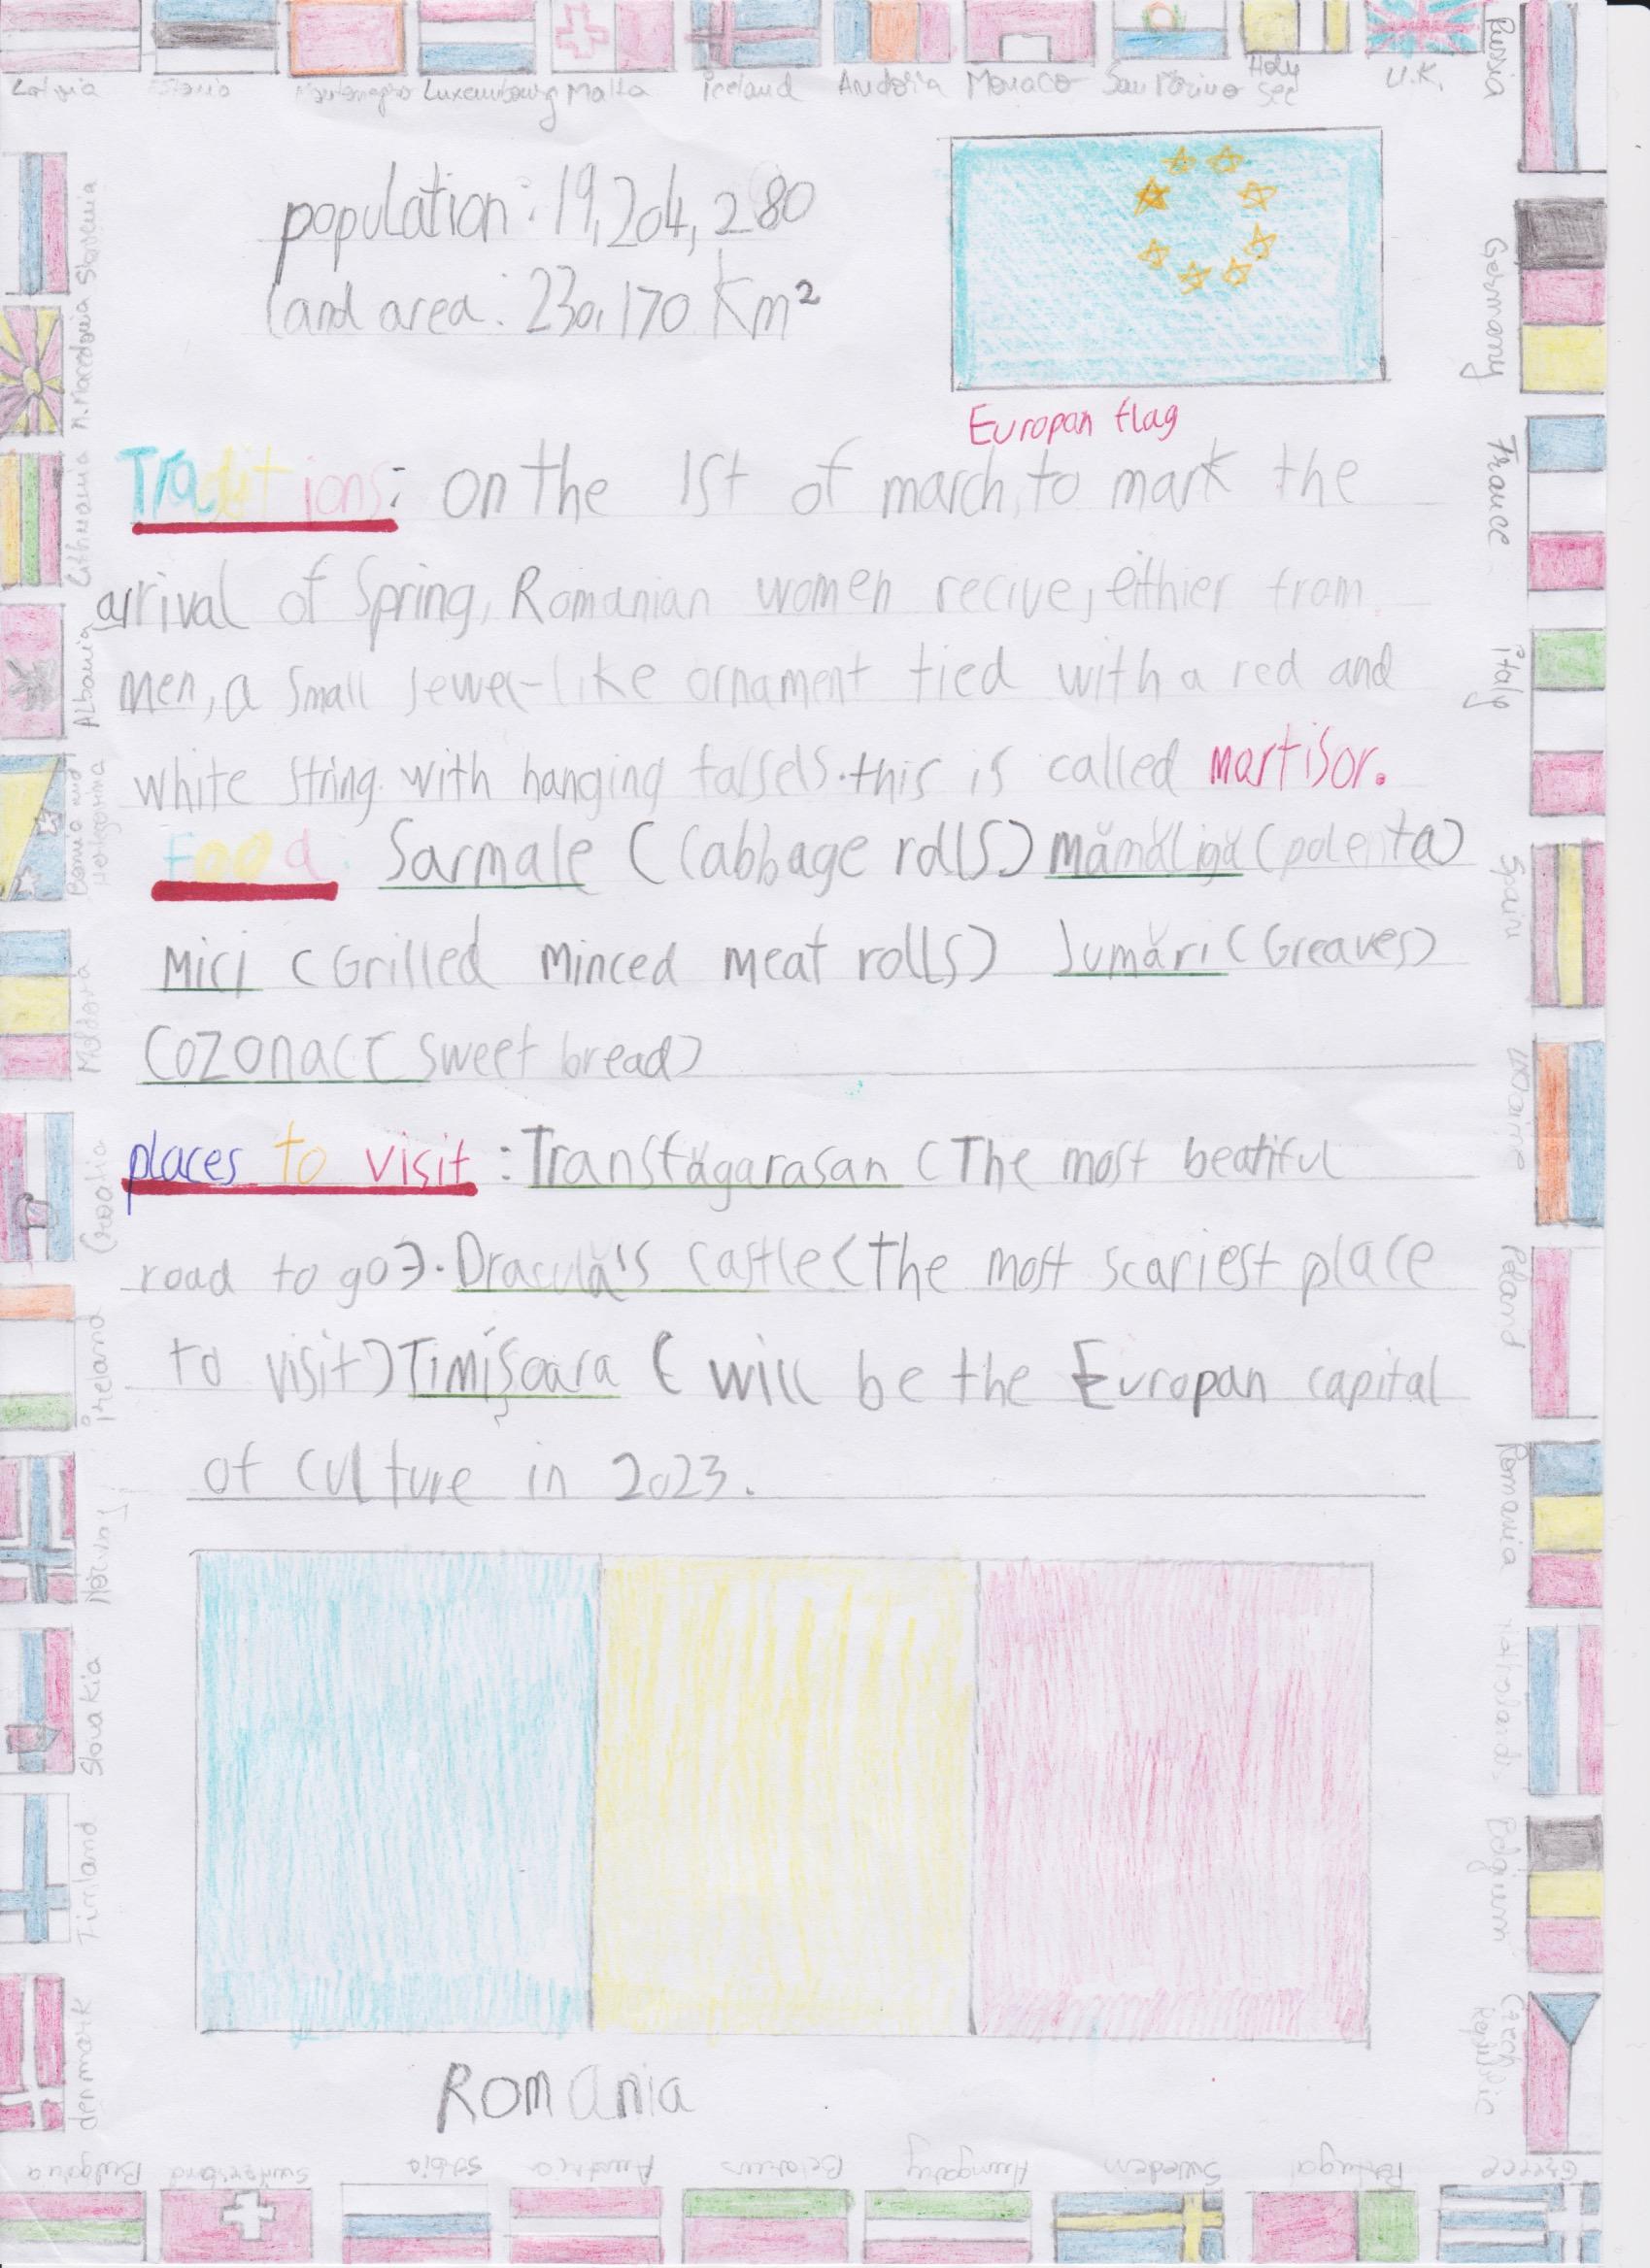 Latvia Estonia Montenegro Luxembourg Malta Iceland Andorra Monaco San Marino Holy See U.K.
Russia
Germany
France
italy
Spain
Ukraine
Poland
Romania
Belgium
Czech Republic
population: 19,204,280
land area: 230,170 Km²
Europan flag
Traditions: on the 1st of march, to mark the
arrival of Spring, Romanian women recive, eithier from
men, a small jewel-like ornament tied with a red and
white string with hanging tassels. this is called martisor.
Food: Sarmale (Cabbage rolls) mămăligă (polenta)
Mici (Grilled minced meat rolls) Jumări (Greaves)
Cozonac (sweet bread)
places to visit: Transfăgarasan (The most beatiful
road to go). Draculă's castle (the most scariest place
to visit) Timișoara ( will be the Europan capital
of culture in 2023.
Romania
Slovenia
N. Macedonia
Lithuania
Albania
Moldova
Croatia
ireland
Slovakia
Finland
denmark
Bulgaria Switzerland Serbia Austria Belarus Hungary Sweden Portugal Greece